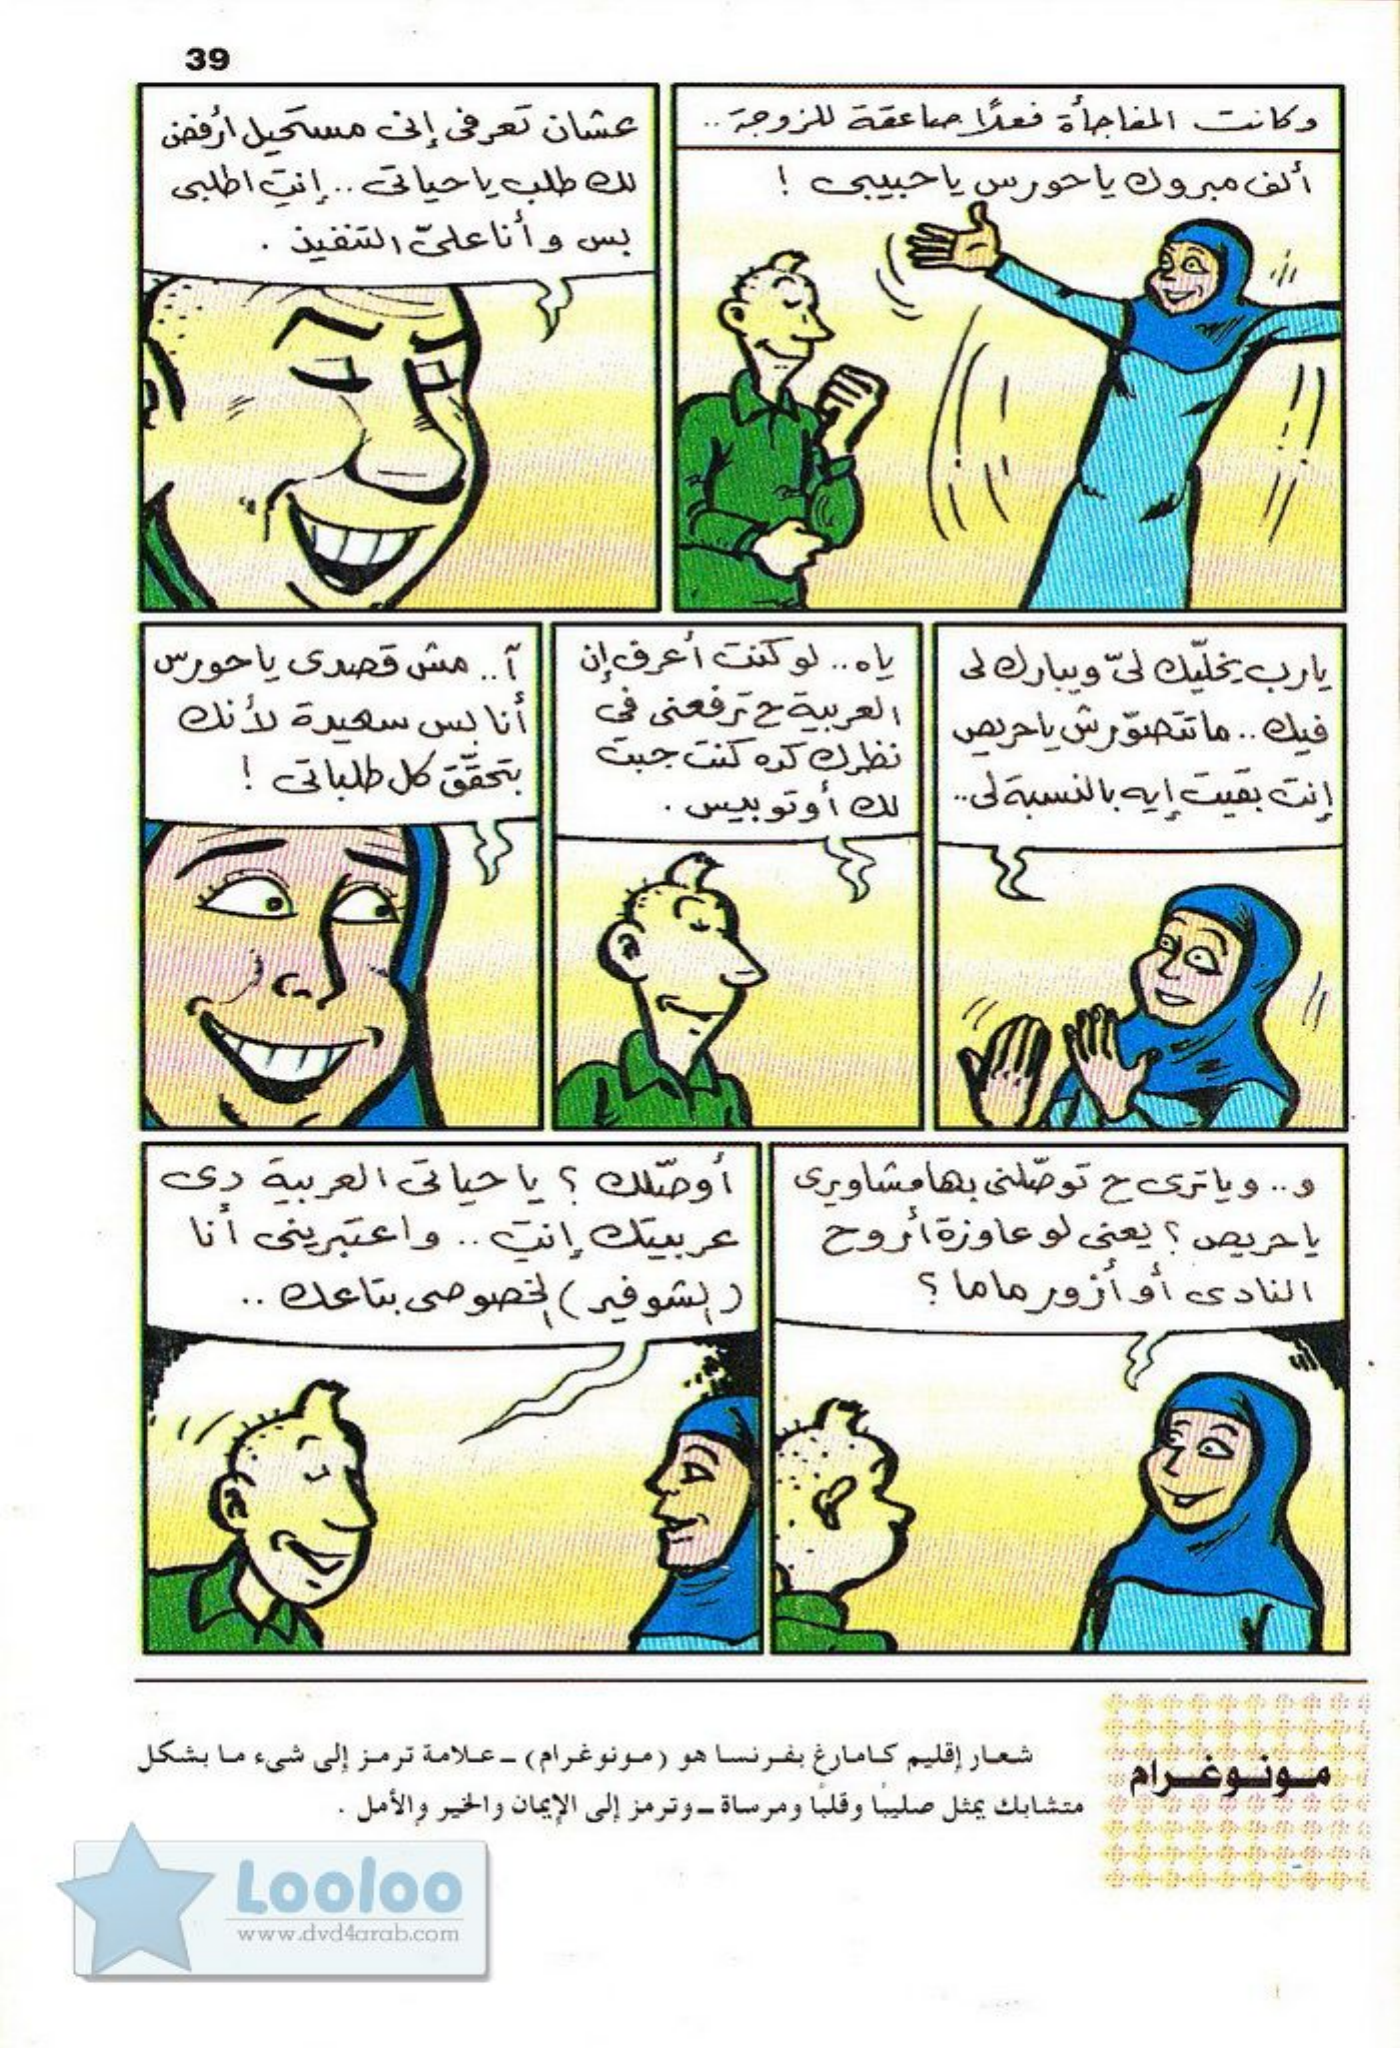 39
وكانت المفاجأة فعلًا صاعقة للزوجة ..
ألف مبروك يا حورس يا حبيبى !
عشان تعرفى إنى مستحيل أرفض
لك طلب يا حياتى .. إنتِ اطلبى
بس وأنا علىّ التنفيذ .
يارب يخلّيك لىّ ويبارك لى
فيك .. ماتتصوّرش يا حريص
إنت بقيت إيه بالنسبة لى ..
ياه .. لو كنت أعرف إن
العربية ح ترفعنى فى
نظرك كده كنت جبت
لك أوتوبيس .
آ .. مش قصدى يا حورس
أنا بس سعيدة لأنك
بتحقّق كل طلباتى !
و .. وياترى ح توصّلنى بها مشاويرى
يا حريص ؟ يعنى لو عاوزة أروح
النادى أو أزور ماما ؟
أوصّلك ؟ يا حياتى العربية دى
عربيتك إنتِ .. واعتبرينى أنا
(الشوفير) الخصوصى بتاعك ..
مونوغرام
شعار إقليم كامارغ بفرنسا هو (مونوغرام) ـ علامة ترمز إلى شىء ما بشكل
متشابك يمثل صليبًا وقلبًا ومرساة ـ وترمز إلى الإيمان والخير والأمل .
Looloo
www.dvd4arab.com